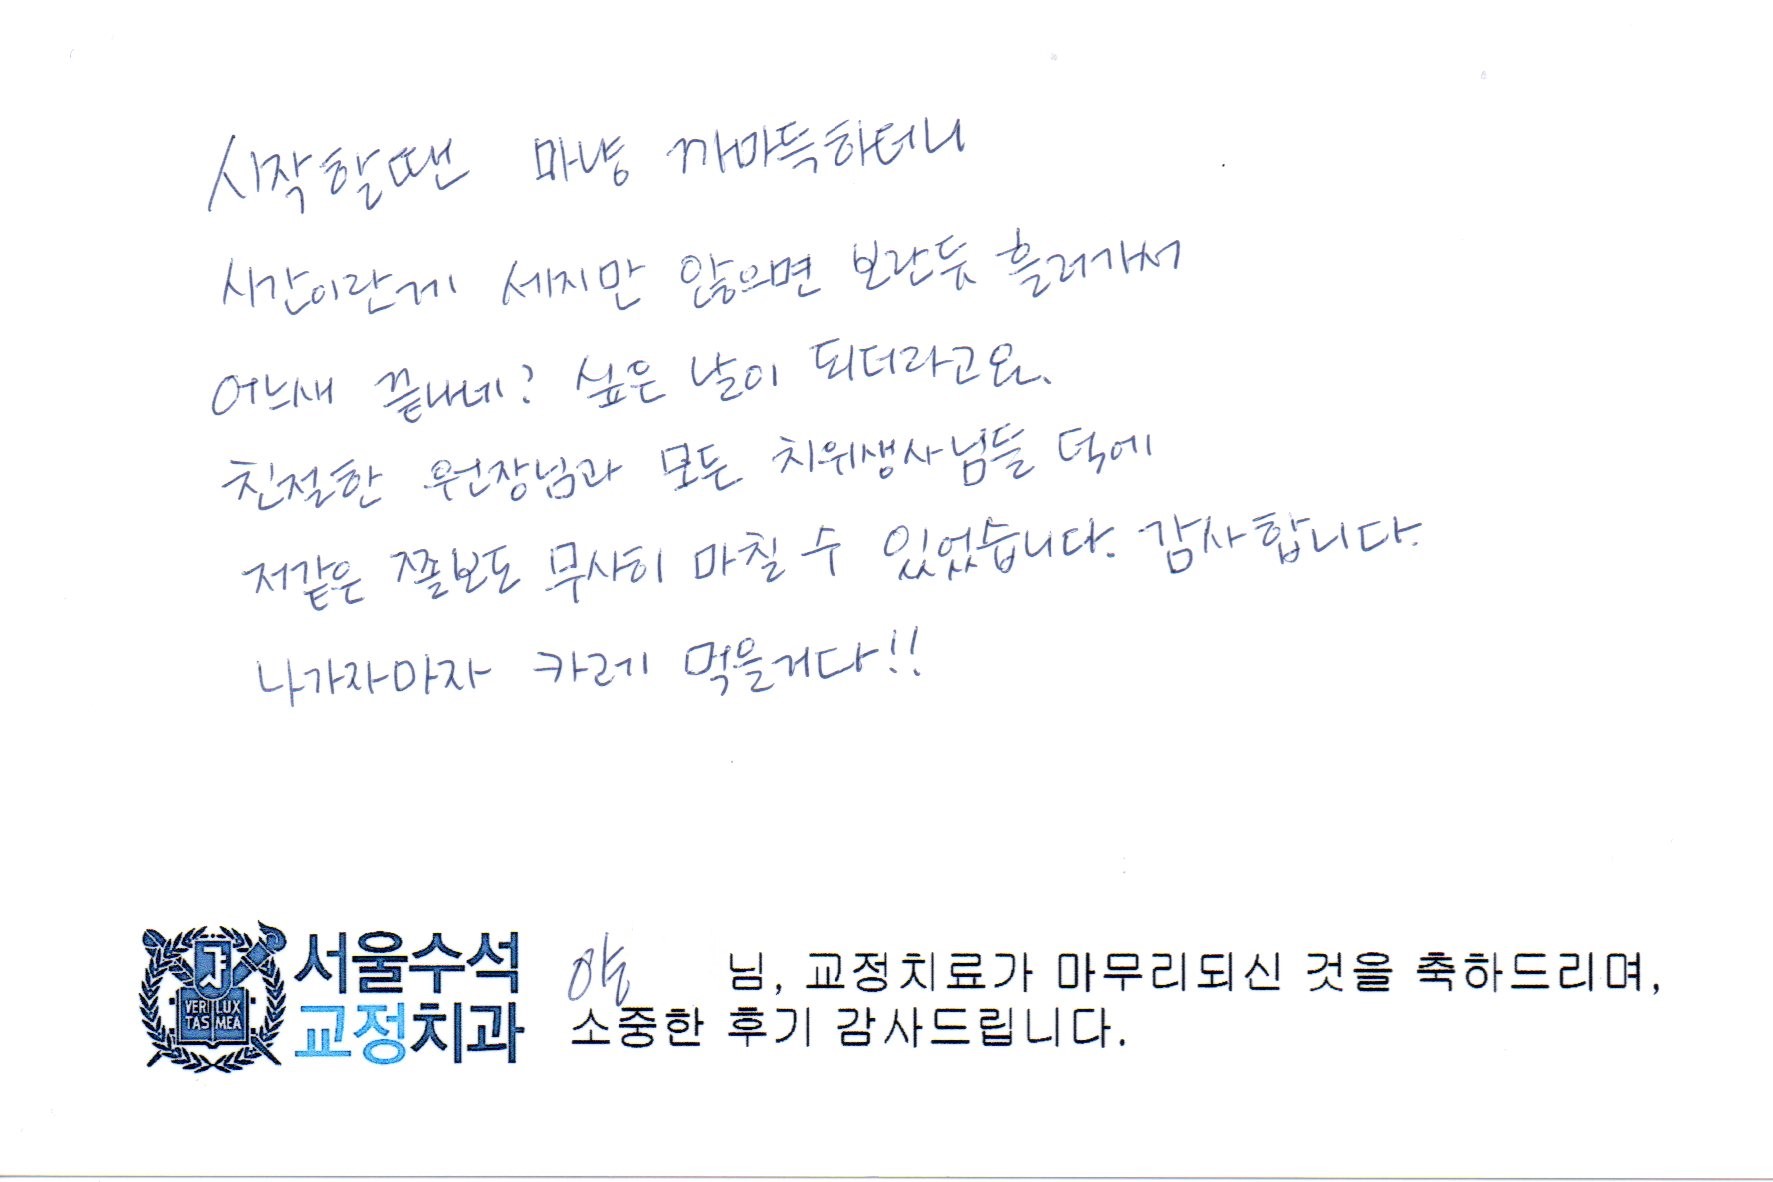 시작할땐 마냥 까마득하터니
시간이란게 세지만 않으면 보란듯 흘러가서
어느새 끝나네? 싶은 날이 되더라고요.
친절한 원장님과 모든 치위생사님들 덕에
저같은 쫄보도 무사히 마칠 수 있었습니다. 감사합니다.
나가자마자 카레 먹을거다!!
서울수석
교정치과
VERI LUX
TAS MEA
양 님, 교정치료가 마무리되신 것을 축하드리며,
소중한 후기 감사드립니다.